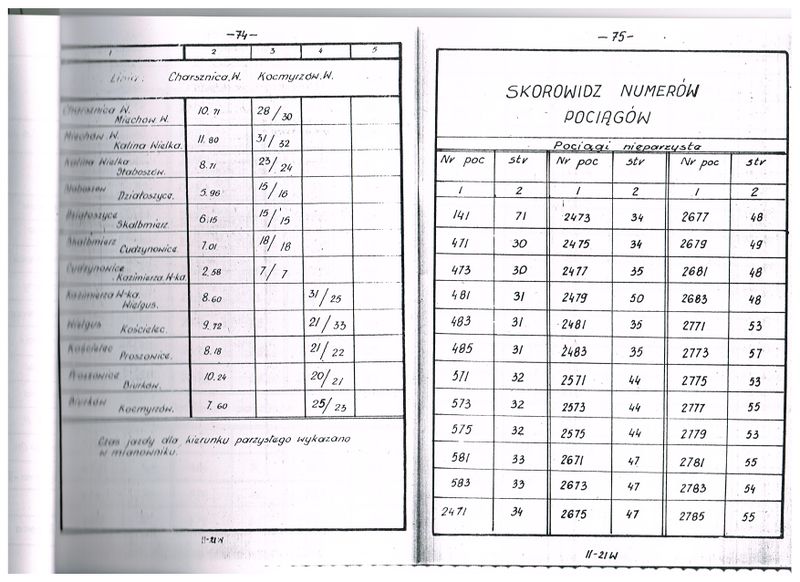 -74-
1 2 3 4 5
Linia: Charsznica.W. Kocmyrzów.W.
Charsznica W.
Miechów.W. 10.71 28/30
Miechów.W.
Kalina Wielka. 11.80 31/32
Kalina Wielka
Słaboszów. 8.71 23/24
Słaboszów
Działoszyce. 5.96 15/16
Działoszyce
Skalbmierz. 6.15 15/15
Skalbmierz
Cudzynowice. 7.01 18/18
Cudzynowice
Kazimierza.W-ka. 2.58 7/7
Kazimierza W-ka.
Wielgus. 8.60 31/25
Wielgus
Kościelec. 9.72 21/33
Kościelec
Proszowice. 8.18 21/22
Proszowice
Biurków. 10.24 20/21
Biurków
Kocmyrzów. 7.60 25/23
Czas jazdy dla kierunku parzystego wykazano
w mianowniku.
II-21W
-75-
SKOROWIDZ NUMERÓW
POCIĄGÓW
Pociągi nieparzyste
Nr poc str Nr poc str Nr poc str
1 2 1 2 1 2
141 71 2473 34 2677 48
471 30 2475 34 2679 49
473 30 2477 35 2681 48
481 31 2479 50 2683 48
483 31 2481 35 2771 53
485 31 2483 35 2773 57
571 32 2571 44 2775 53
573 32 2573 44 2777 55
575 32 2575 44 2779 53
581 33 2671 47 2781 55
583 33 2673 47 2783 54
2471 34 2675 47 2785 55
II-21W